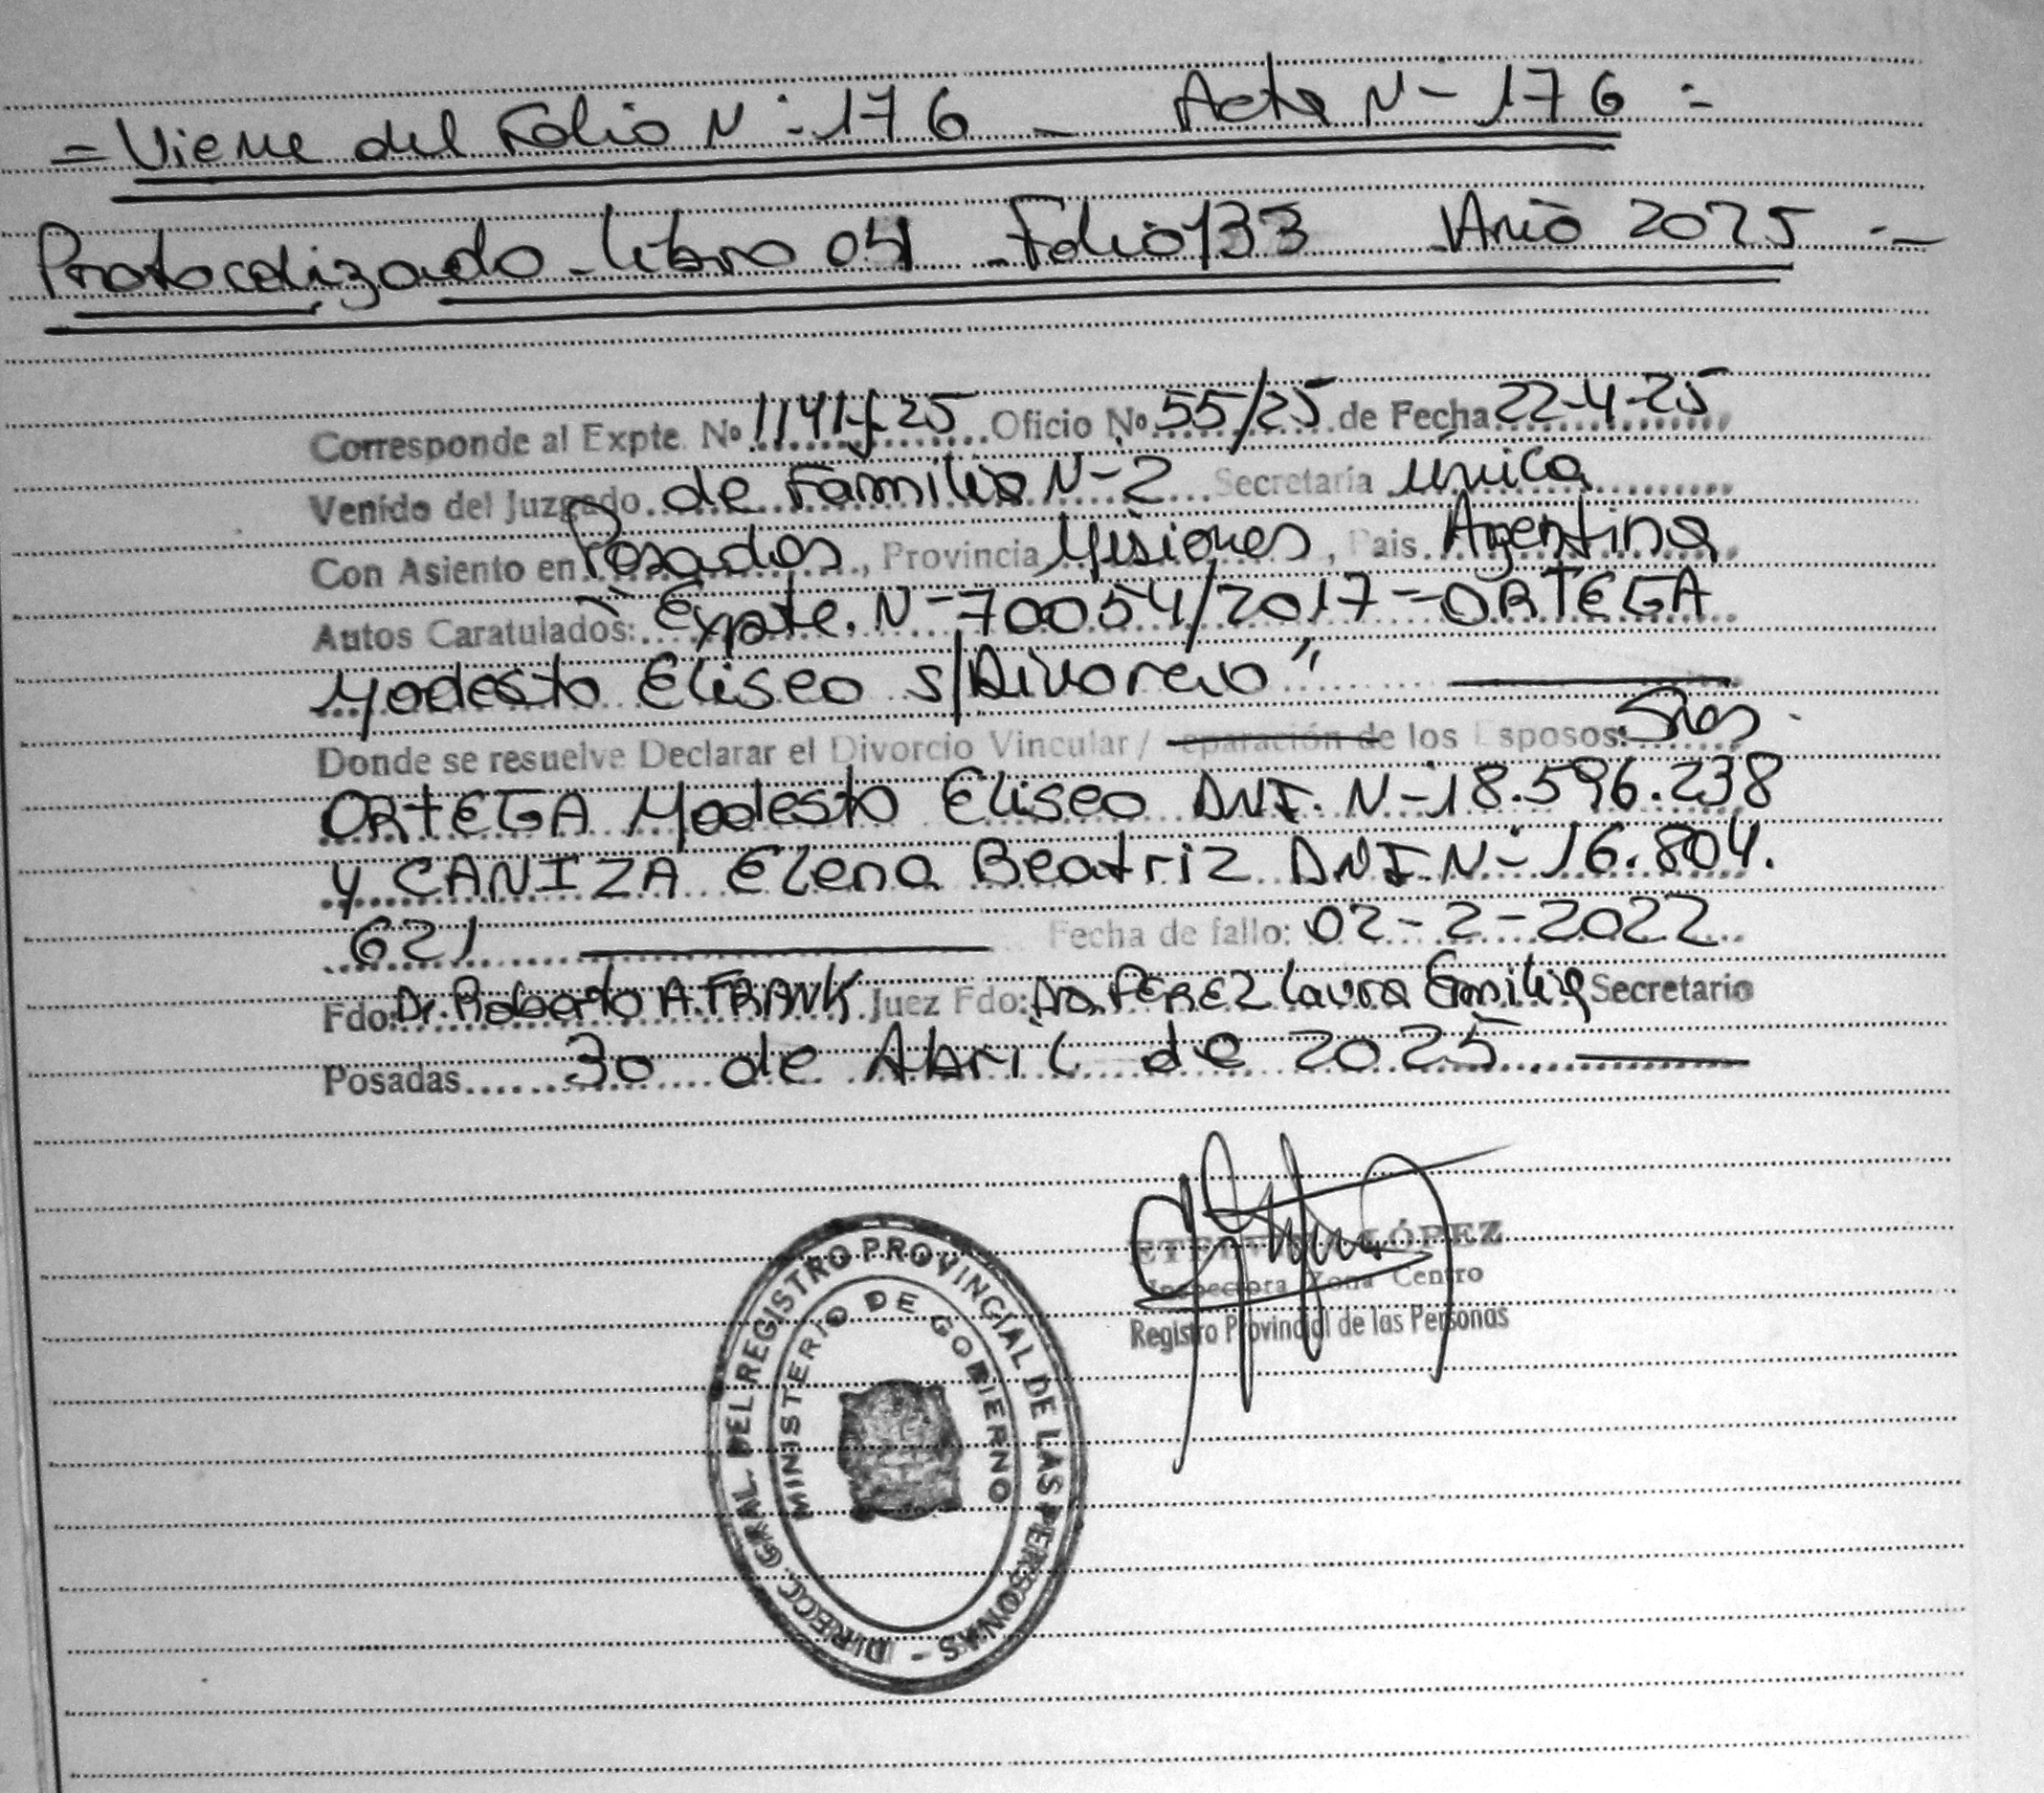 = Viene del Folio N-176 - Acta N-176 =
Protocolizado - Libro 04 - Folio 133 - Año 2025 -
Corresponde al Expte. Nº 1141-f-25 Oficio Nº 55/25 de Fecha 22-4-25
Venido del Juzgado de Familia N-2 Secretaría única
Con Asiento en Posadas, Provincia Misiones, Pais Argentina
Autos Caratulados: "Expte. N-70054/2017 - ORTEGA
Modesto Eliseo s/Divorcio"
Donde se resuelve Declarar el Divorcio Vincular / eparación de los Esposos: Sres.
ORTEGA Modesto Eliseo DNI. N-18.596.238
y CANIZA Elena Beatriz DNI. N-16.804.
621 Fecha de fallo: 02-2-2022
Fdo: Dr. Roberto A. FRANK Juez Fdo: Dra. PEREZ Laura Emilia Secretario
Posadas 30 de Abril de 2025
LÓPEZ
Inspectora Zona Centro
Registro Provincial de las Personas
DIRECC. GRAL. DEL REGISTRO PROVINCIAL DE LAS PERSONAS -
MINISTERIO DE GOBIERNO